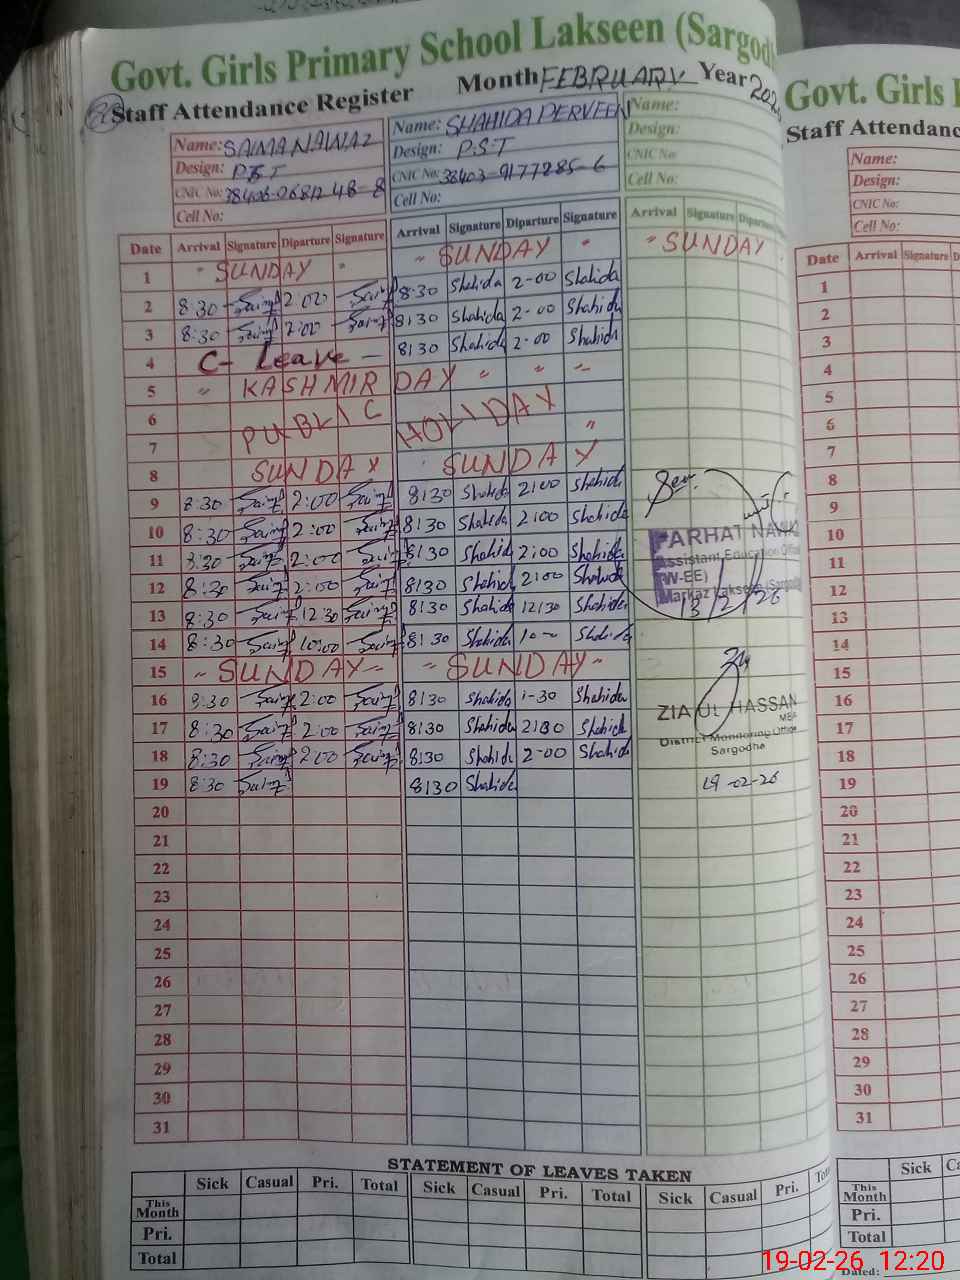 Govt. Girls Primary School Lakseen (Sargod
Staff Attendance Register Month FEBRUARY Year 202
Name: SAIMA NAWAZ
Design: PST
CNIC No:
Cell No:
Name: SHAHIDA PERVEEN
Design: P.S.T
CNIC No: 38403-9177285-6
Cell No:
Name:
Design:
CNIC No:
Cell No:
Date Arrival Signature Diparture Signature Arrival Signature Diparture Signature Arrival Signature Diparture
1 " SUNDAY " " SUNDAY " " SUNDAY
2 8:30 2:00 8:30 Shahida 2-00 Shahida
3 8:30 2:00 8:30 Shahida 2-00 Shahida
4 C- Leave - 8:30 Shahida 2-00 Shahida
5 " KASHMIR DAY " " "
6 PUBLIC HOLIDAY
7 "
8 SUNDAY SUNDAY
9 8:30 2:00 8:30 Shahida 2:00 Shahida
10 8:30 2:00 8:30 Shahida 2:00 Shahida
11 8:30 2:00 8:30 Shahida 2:00 Shahida
12 8:30 2:00 8:30 Shahida 2:00 Shahida
13 8:30 12:30 8:30 Shahida 12:30 Shahida
14 8:30 10:00 8:30 Shahida 10- Shahida
15 " SUNDAY " " SUNDAY "
16 8:30 2:00 8:30 Shahida 1-30 Shahida
17 8:30 2:00 8:30 Shahida 2:30 Shahida
18 8:30 2:00 8:30 Shahida 2-00 Shahida
19 8:30 8:30 Shahida
20
21
22
23
24
25
26
27
28
29
30
31
FARHAT NAWAZ
Assistant Education Office
(W-EE)
Markaz Lakseen (Sargodh
13/2/26
ZIA UL HASSAN
MBA
District Monitoring Office
Sargodha
19-02-26
STATEMENT OF LEAVES TAKEN
Sick Casual Pri. Total Sick Casual Pri. Total Sick Casual Pri. Tot
This Month
Pri.
Total
Govt. Girls
Staff Attendanc
Name:
Design:
CNIC No:
Cell No:
Date Arrival Signature D
1
2
3
4
5
6
7
8
9
10
11
12
13
14
15
16
17
18
19
20
21
22
23
24
25
26
27
28
29
30
31
Sick Ca
This Month
Pri.
Total
Dated:
19-02-26 12:20